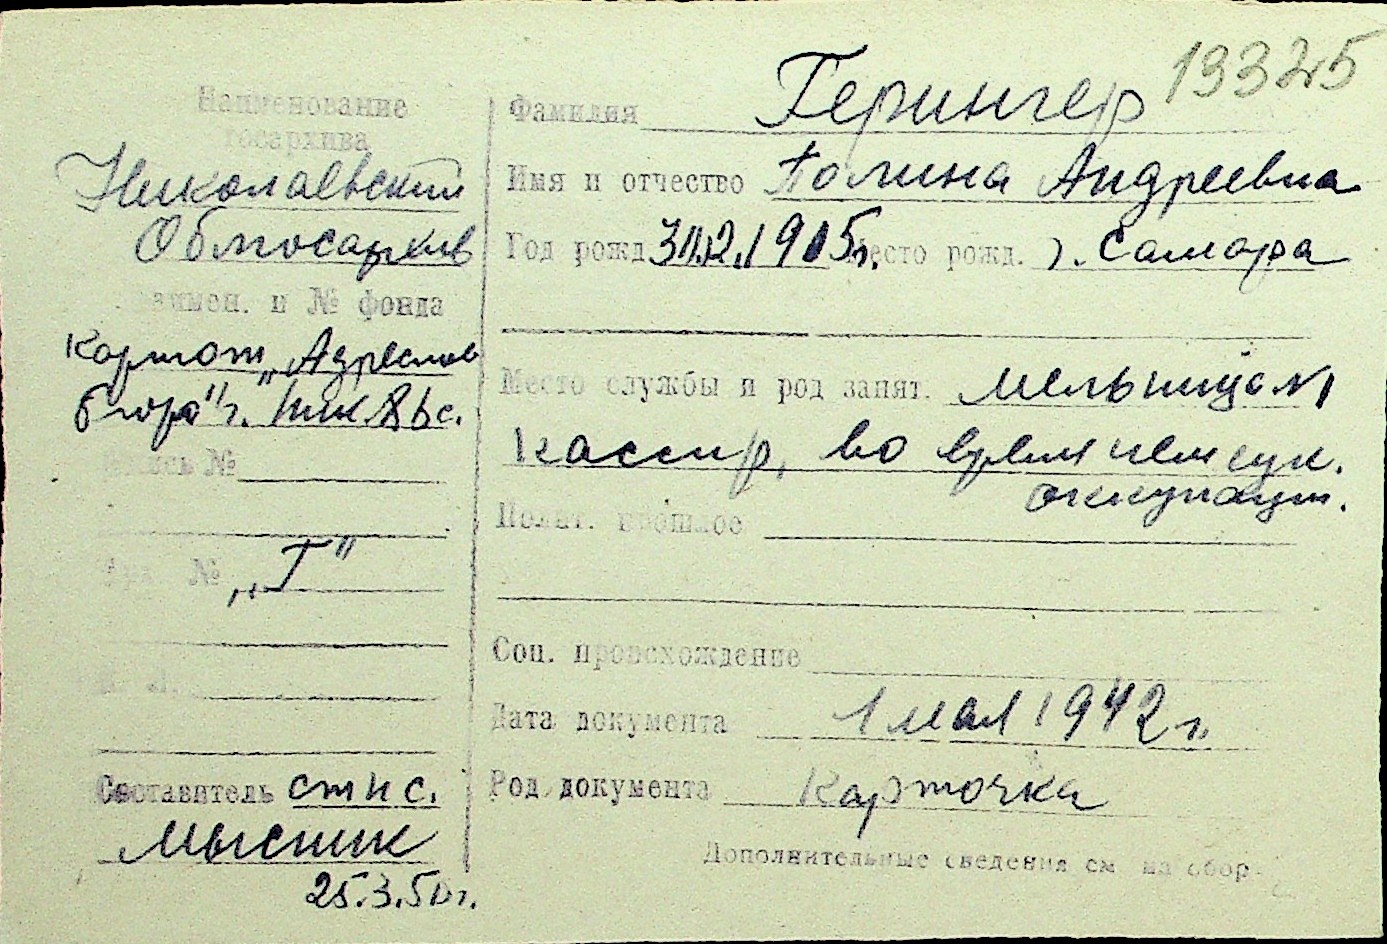 19325
Наименование
госархива
Николаевский
Облгосархив
наимен. и № фонда
Картот. „Адресное
бюро" г. Ник.
Опись №
Арх. № „Г"
Составитель ст н с.
Мысник
25.3.50г.
Фамилия Герингер
Имя и отчество Полина Андреевна
Год рожд. 1905г. Место рожд. г. Самара
Место службы и род занят. мельница №1
кассир, во время нем рум.
оккупации.
Полит. прошлое
Соц. происхождение
Дата документа 1 мая 1942 г.
Род документа Карточка
Дополнительные сведения см на обор